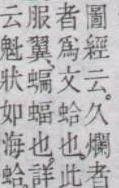 圖經云。久爛者
者爲文蛤也。此
服翼、蝙蝠也。詳
云魁狀如海蛤